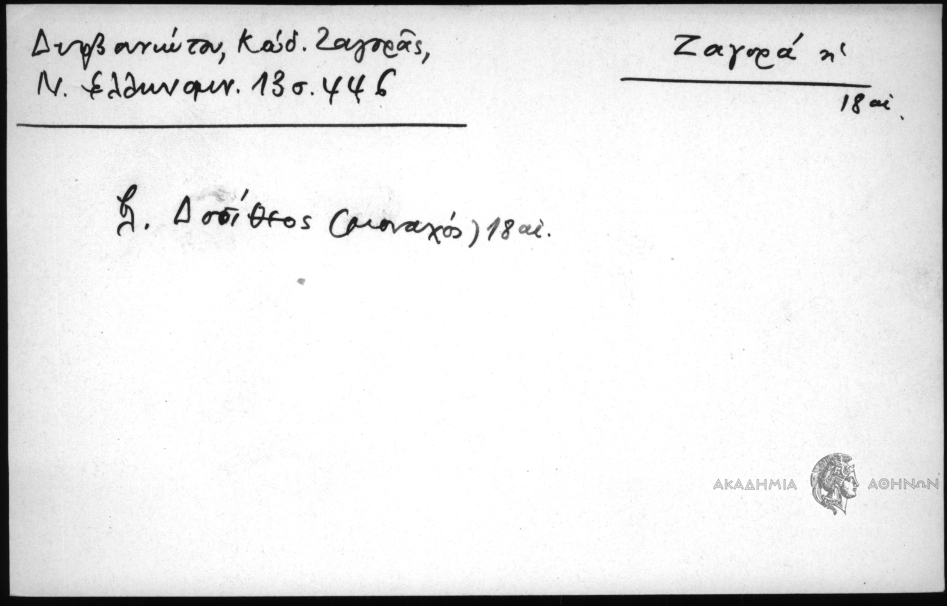 Δυοβουνιώτου, Κώδ. Ζαγορᾶς,
Ν. Ελληνομν. 13 σ. 446
Ζαγορά η'
18 αἰ.
βλ. Δοσίθεος (μοναχός) 18 αἰ.
ΑΚΑΔΗΜΙΑ ΑΘΗΝΩΝ